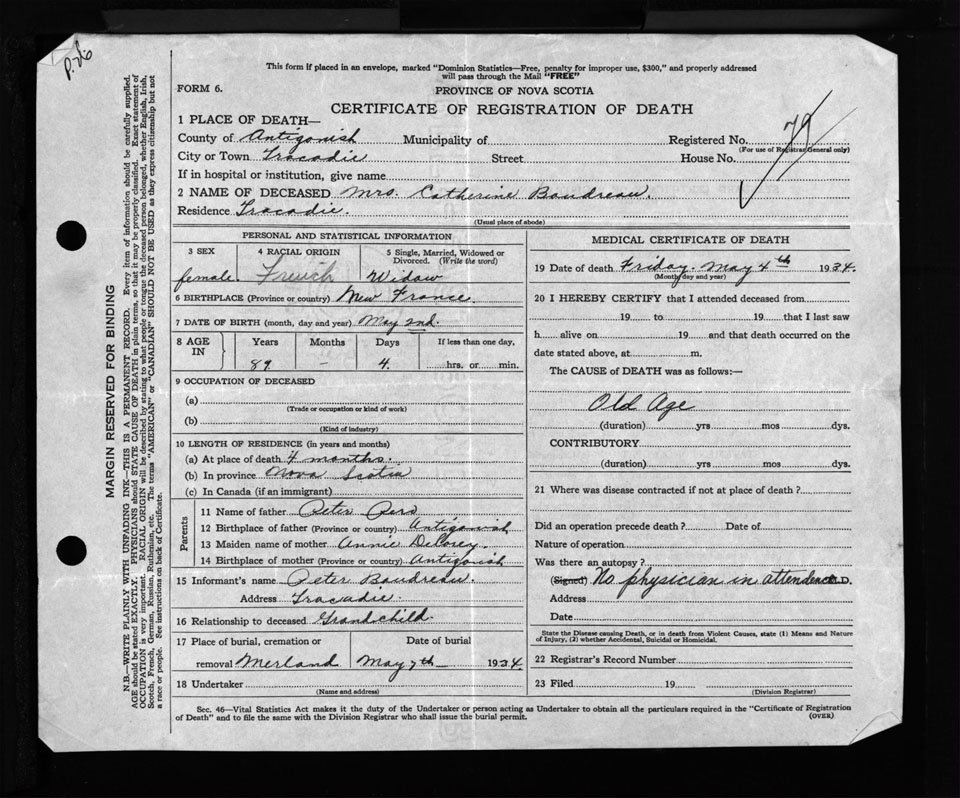 P. 26
This form if placed in an envelope, marked "Dominion Statistics—Free, penalty for improper use, $300," and properly addressed
will pass through the Mail "FREE"
FORM 6.
PROVINCE OF NOVA SCOTIA
CERTIFICATE OF REGISTRATION OF DEATH
1 PLACE OF DEATH—
County of Antigonish Municipality of Registered No. 79
(For use of Registrar General only)
City or Town Tracadie Street House No.
If in hospital or institution, give name
2 NAME OF DECEASED Mrs. Catherine Boudreau.
Residence Tracadie.
(Usual place of abode)
PERSONAL AND STATISTICAL INFORMATION
3 SEX 4 RACIAL ORIGIN 5 Single, Married, Widowed or
Divorced. (Write the word)
female. French Widow
6 BIRTHPLACE (Province or country) New France.
7 DATE OF BIRTH (month, day and year) May 2nd.
8 AGE IN Years Months Days If less than one day,
89 – 4. hrs. or min.
9 OCCUPATION OF DECEASED
(a)
(Trade or occupation or kind of work)
(b)
(Kind of industry)
10 LENGTH OF RESIDENCE (in years and months)
(a) At place of death 4 months.
(b) In province Nova Scotia
(c) In Canada (if an immigrant)
Parents
11 Name of father Peter Pero
12 Birthplace of father (Province or country) Antigonish
13 Maiden name of mother Annie DeLorey.
14 Birthplace of mother (Province or country) Antigonish
15 Informant's name Peter Boudreau.
Address Tracadie.
16 Relationship to deceased Grandchild
17 Place of burial, cremation or Date of burial
removal Merland May 7th 1934
18 Undertaker
(Name and address)
MEDICAL CERTIFICATE OF DEATH
19 Date of death Friday. May 4th 1934.
(Month day and year)
20 I HEREBY CERTIFY that I attended deceased from
19 to 19 that I last saw
h alive on 19 and that death occurred on the
date stated above, at m.
The CAUSE of DEATH was as follows:—
Old Age
(duration) yrs mos dys.
CONTRIBUTORY
(duration) yrs mos dys.
21 Where was disease contracted if not at place of death?
Did an operation precede death? Date of
Nature of operation
Was there an autopsy?
(Signed) No physician in attendence M.D.
Address
Date
State the Disease causing Death, or in death from Violent Causes, state (1) Means and Nature
of Injury, (2) whether Accidental, Suicidal or Homicidal.
22 Registrar's Record Number
23 Filed 19
(Division Registrar)
Sec. 46—Vital Statistics Act makes it the duty of the Undertaker or person acting as Undertaker to obtain all the particulars required in the "Certificate of Registration
of Death" and to file the same with the Division Registrar who shall issue the burial permit.
(OVER)
MARGIN RESERVED FOR BINDING
N.B.—WRITE PLAINLY WITH UNFADING INK—THIS IS A PERMANENT RECORD. Every item of information should be carefully supplied.
AGE should be stated EXACTLY. PHYSICIANS should STATE CAUSE OF DEATH in plain terms, so that it may be properly classified. Exact statement of
OCCUPATION is very important. RACIAL ORIGIN will be described by stating to what people or tongue the deceased person belonged, whether English, Irish,
Scotch, French, German, Russian, Ruthenian, etc. The terms "AMERICAN" or "CANADIAN" SHOULD NOT BE USED as they express citizenship but not
a race or people. See instructions on back of Certificate.